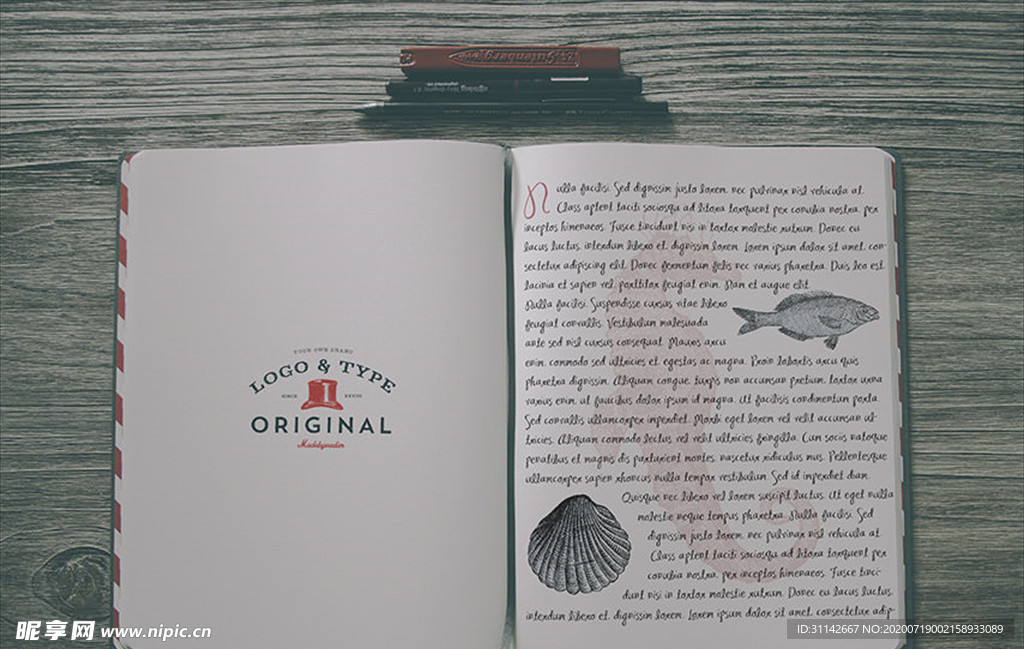 Gutenberg
YOUR OWN BRAND
LOGO & TYPE
SINCE 1
ORIGINAL
Nulla facilisi. Sed dignissim justo lorem, nec pulvinar nisl vehicula at.
Class aptent taciti sociosqu ad litora torquent per conubia nostra, per
inceptos himenaeos. Fusce tincidunt nisi in tortor molestie rutrum. Donec eu
lacus luctus, interdum libero et, dignissim lorem. Lorem ipsum dolor sit amet, con-
sectetur adipiscing elit. Donec fermentum felis nec varius pharetra. Duis leo est,
lacinia et sapien vel, porttitor feugiat enim. Nam et augue elit.
Nulla facilisi. Suspendisse cursus vitae libero
feugiat convallis. Vestibulum malesuada
ante sed nisl cursus consequat. Mauris arcu
enim, commodo sed ultricies et, egestas ac magna. Proin lobortis arcu quis
pharetra dignissim. Aliquam congue, turpis non accumsan pretium, tortor urna
varius enim, ut faucibus dolor ipsum id magna. Ut facilisis condimentum porta.
Sed convallis ullamcorper imperdiet. Morbi eget lorem vel velit accumsan ul-
tricies. Aliquam commodo lectus vel velit ultricies fringilla. Cum sociis natoque
penatibus et magnis dis parturient montes, nascetur ridiculus mus. Pellentesque
ullamcorper sapien rhoncus nulla tempor vestibulum. Sed id imperdiet diam.
Quisque nec libero vel lorem suscipit luctus. Ut eget nulla
molestie neque tempus pharetra. Nulla facilisi. Sed
dignissim justo lorem, nec pulvinar nisl vehicula at.
Class aptent taciti sociosqu ad litora torquent per
conubia nostra, per inceptos himenaeos. Fusce tinci-
dunt nisi in tortor molestie rutrum. Donec eu lacus luctus,
interdum libero et, dignissim lorem. Lorem ipsum dolor sit amet, consectetur adip-
昵享网 www.nipic.cn
ID:31142667 NO:20200719002158933089